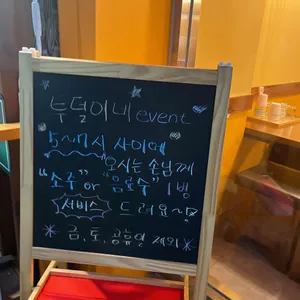 투덜이네 event
5~7시 사이에
오시는 손님께
"소주" or "음료수" 1병
서비스 드려요~
금, 토, 공휴일 제외